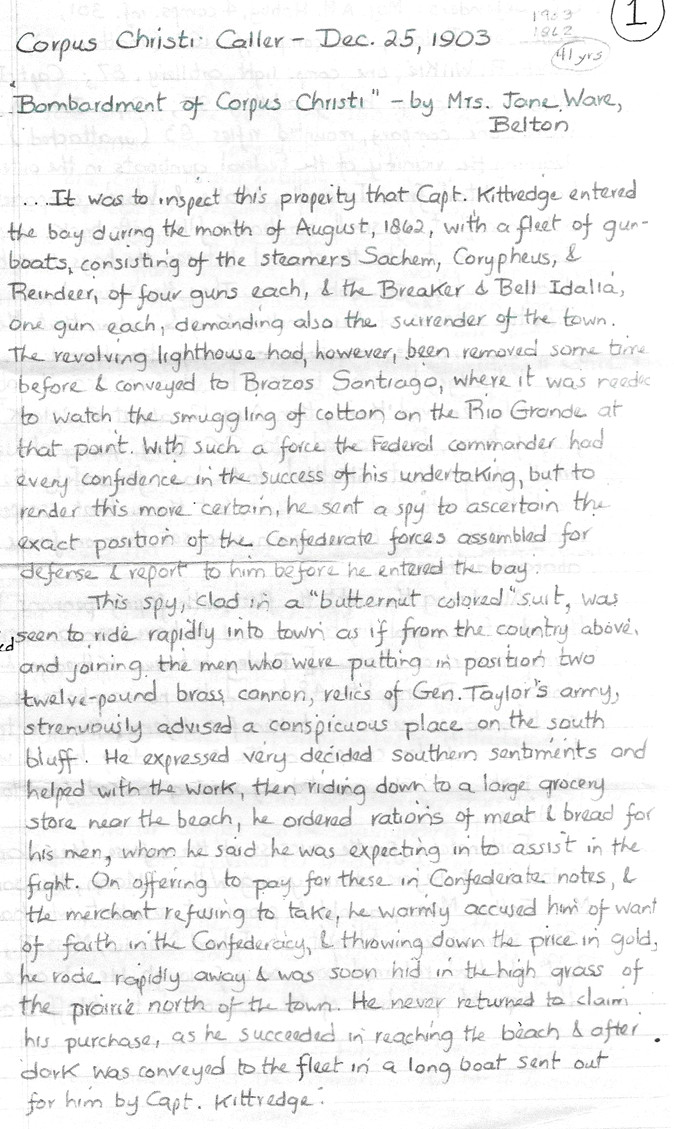 1903
1862
41 yrs
1
Corpus Christi Caller – Dec. 25, 1903
"Bombardment of Corpus Christi" – by Mrs. Jane Ware,
Belton
...It was to inspect this property that Capt. Kittredge entered
the bay during the month of August, 1862, with a fleet of gun-
boats, consisting of the steamers Sachem, Corypheus, &
Reindeer, of four guns each, & the Breaker & Bell Idalia,
one gun each, demanding also the surrender of the town.
The revolving lighthouse had, however, been removed some time
before & conveyed to Brazos Santiago, where it was needed
to watch the smuggling of cotton on the Rio Grande at
that point. With such a force the Federal commander had
every confidence in the success of his undertaking, but to
render this more certain, he sent a spy to ascertain the
exact position of the Confederate forces assembled for
defense & report to him before he entered the bay.
This spy, clad in a "butternut colored" suit, was
seen to ride rapidly into town as if from the country above,
and joining the men who were putting in position two
twelve-pound brass cannon, relics of Gen. Taylor's army,
strenuously advised a conspicuous place on the south
bluff. He expressed very decided southern sentiments and
helped with the work, then riding down to a large grocery
store near the beach, he ordered rations of meat & bread for
his men, whom he said he was expecting in to assist in the
fight. On offering to pay for these in Confederate notes, &
the merchant refusing to take, he warmly accused him of want
of faith in the Confederacy, & throwing down the price in gold,
he rode rapidly away & was soon hid in the high grass of
the prairie north of the town. He never returned to claim
his purchase, as he succeeded in reaching the beach & after
dark was conveyed to the fleet in a long boat sent out
for him by Capt. Kittredge.